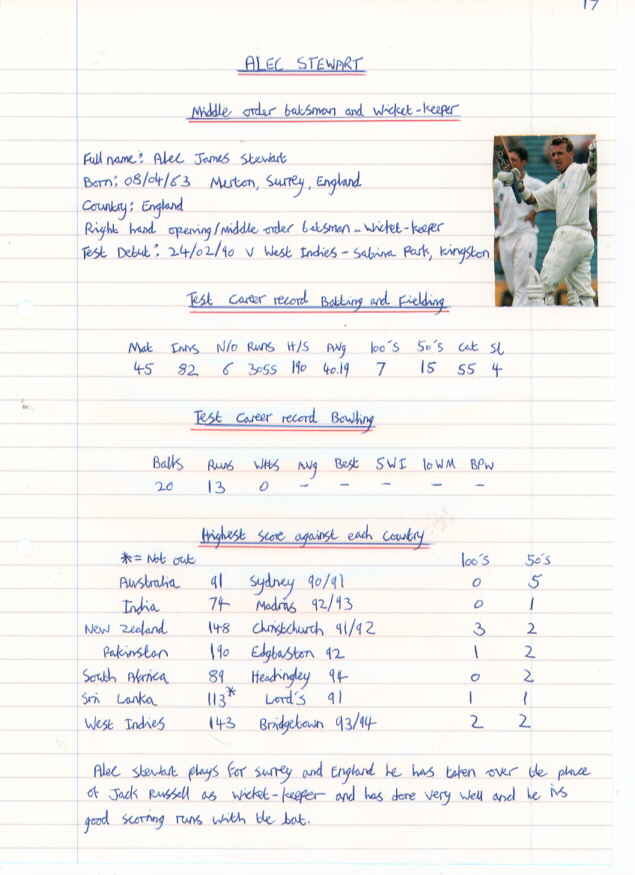 17
ALEC STEWART
Middle order batsman and Wicket-keeper
Full name: Alec James Stewart
Born: 08/04/63 Merton, Surrey, England
Country: England
Right hand opening/middle order batsman - Wicket-keeper
Test Debut: 24/02/90 V West Indies - Sabina Park, Kingston
Test Career record Batting and Fielding
Mat Inns N/O Runs H/S Avg 100's 50's Cat St
45 82 6 3055 190 40.19 7 15 55 4
Test Career record Bowling
Balls Runs Wkts Avg Best 5WI 10WM BPW
20 13 0 - - - - -
Highest Score against each Country
*= Not out 100's 50's
Australia 91 Sydney 90/91 0 5
India 74 Madras 92/93 0 1
New Zealand 148 Christchurch 91/92 3 2
Pakinstan 190 Edgbaston 92 1 2
South Africa 89 Headingley 94 0 2
Sri Lanka 113* Lord's 91 1 1
West Indies 143 Bridgetown 93/94 2 2
Alec Stewart plays for Surrey and England he has taken over the place
of Jack Russell as Wicket-keeper and has done very well and he is
good scoring runs with the bat.